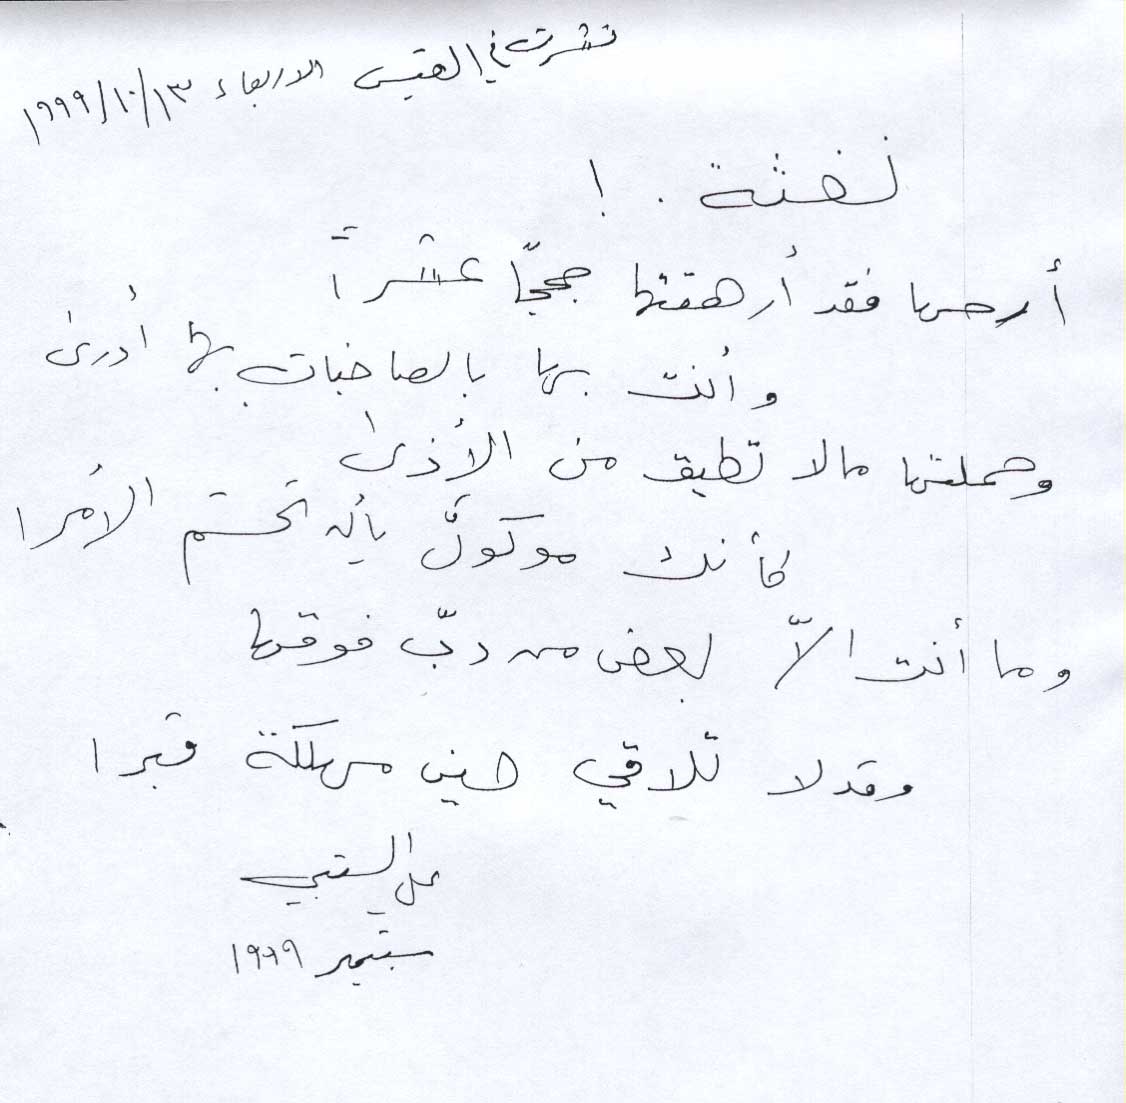 نشرت في القبس الاربعاء ١٣/١٠/١٩٩٩
نفثة . !
أرحها فقد أرهقتها حججًا عشرًا
وأنت بها بالصاخبات بها أدرى
وحملتها مالا تطيق من الأذى
كأنك موكولٌ بأن تحسم الأمرا
وما أنت الاّ بعض من دبّ فوقها
وقد لا تلاقي حين مهلكة قبرا
علي السبتي
سبتمبر ١٩٩٩